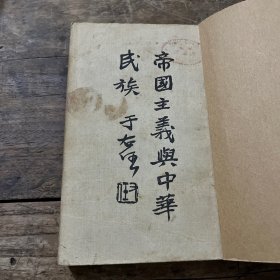 帝國主義與中華
民族 于右任